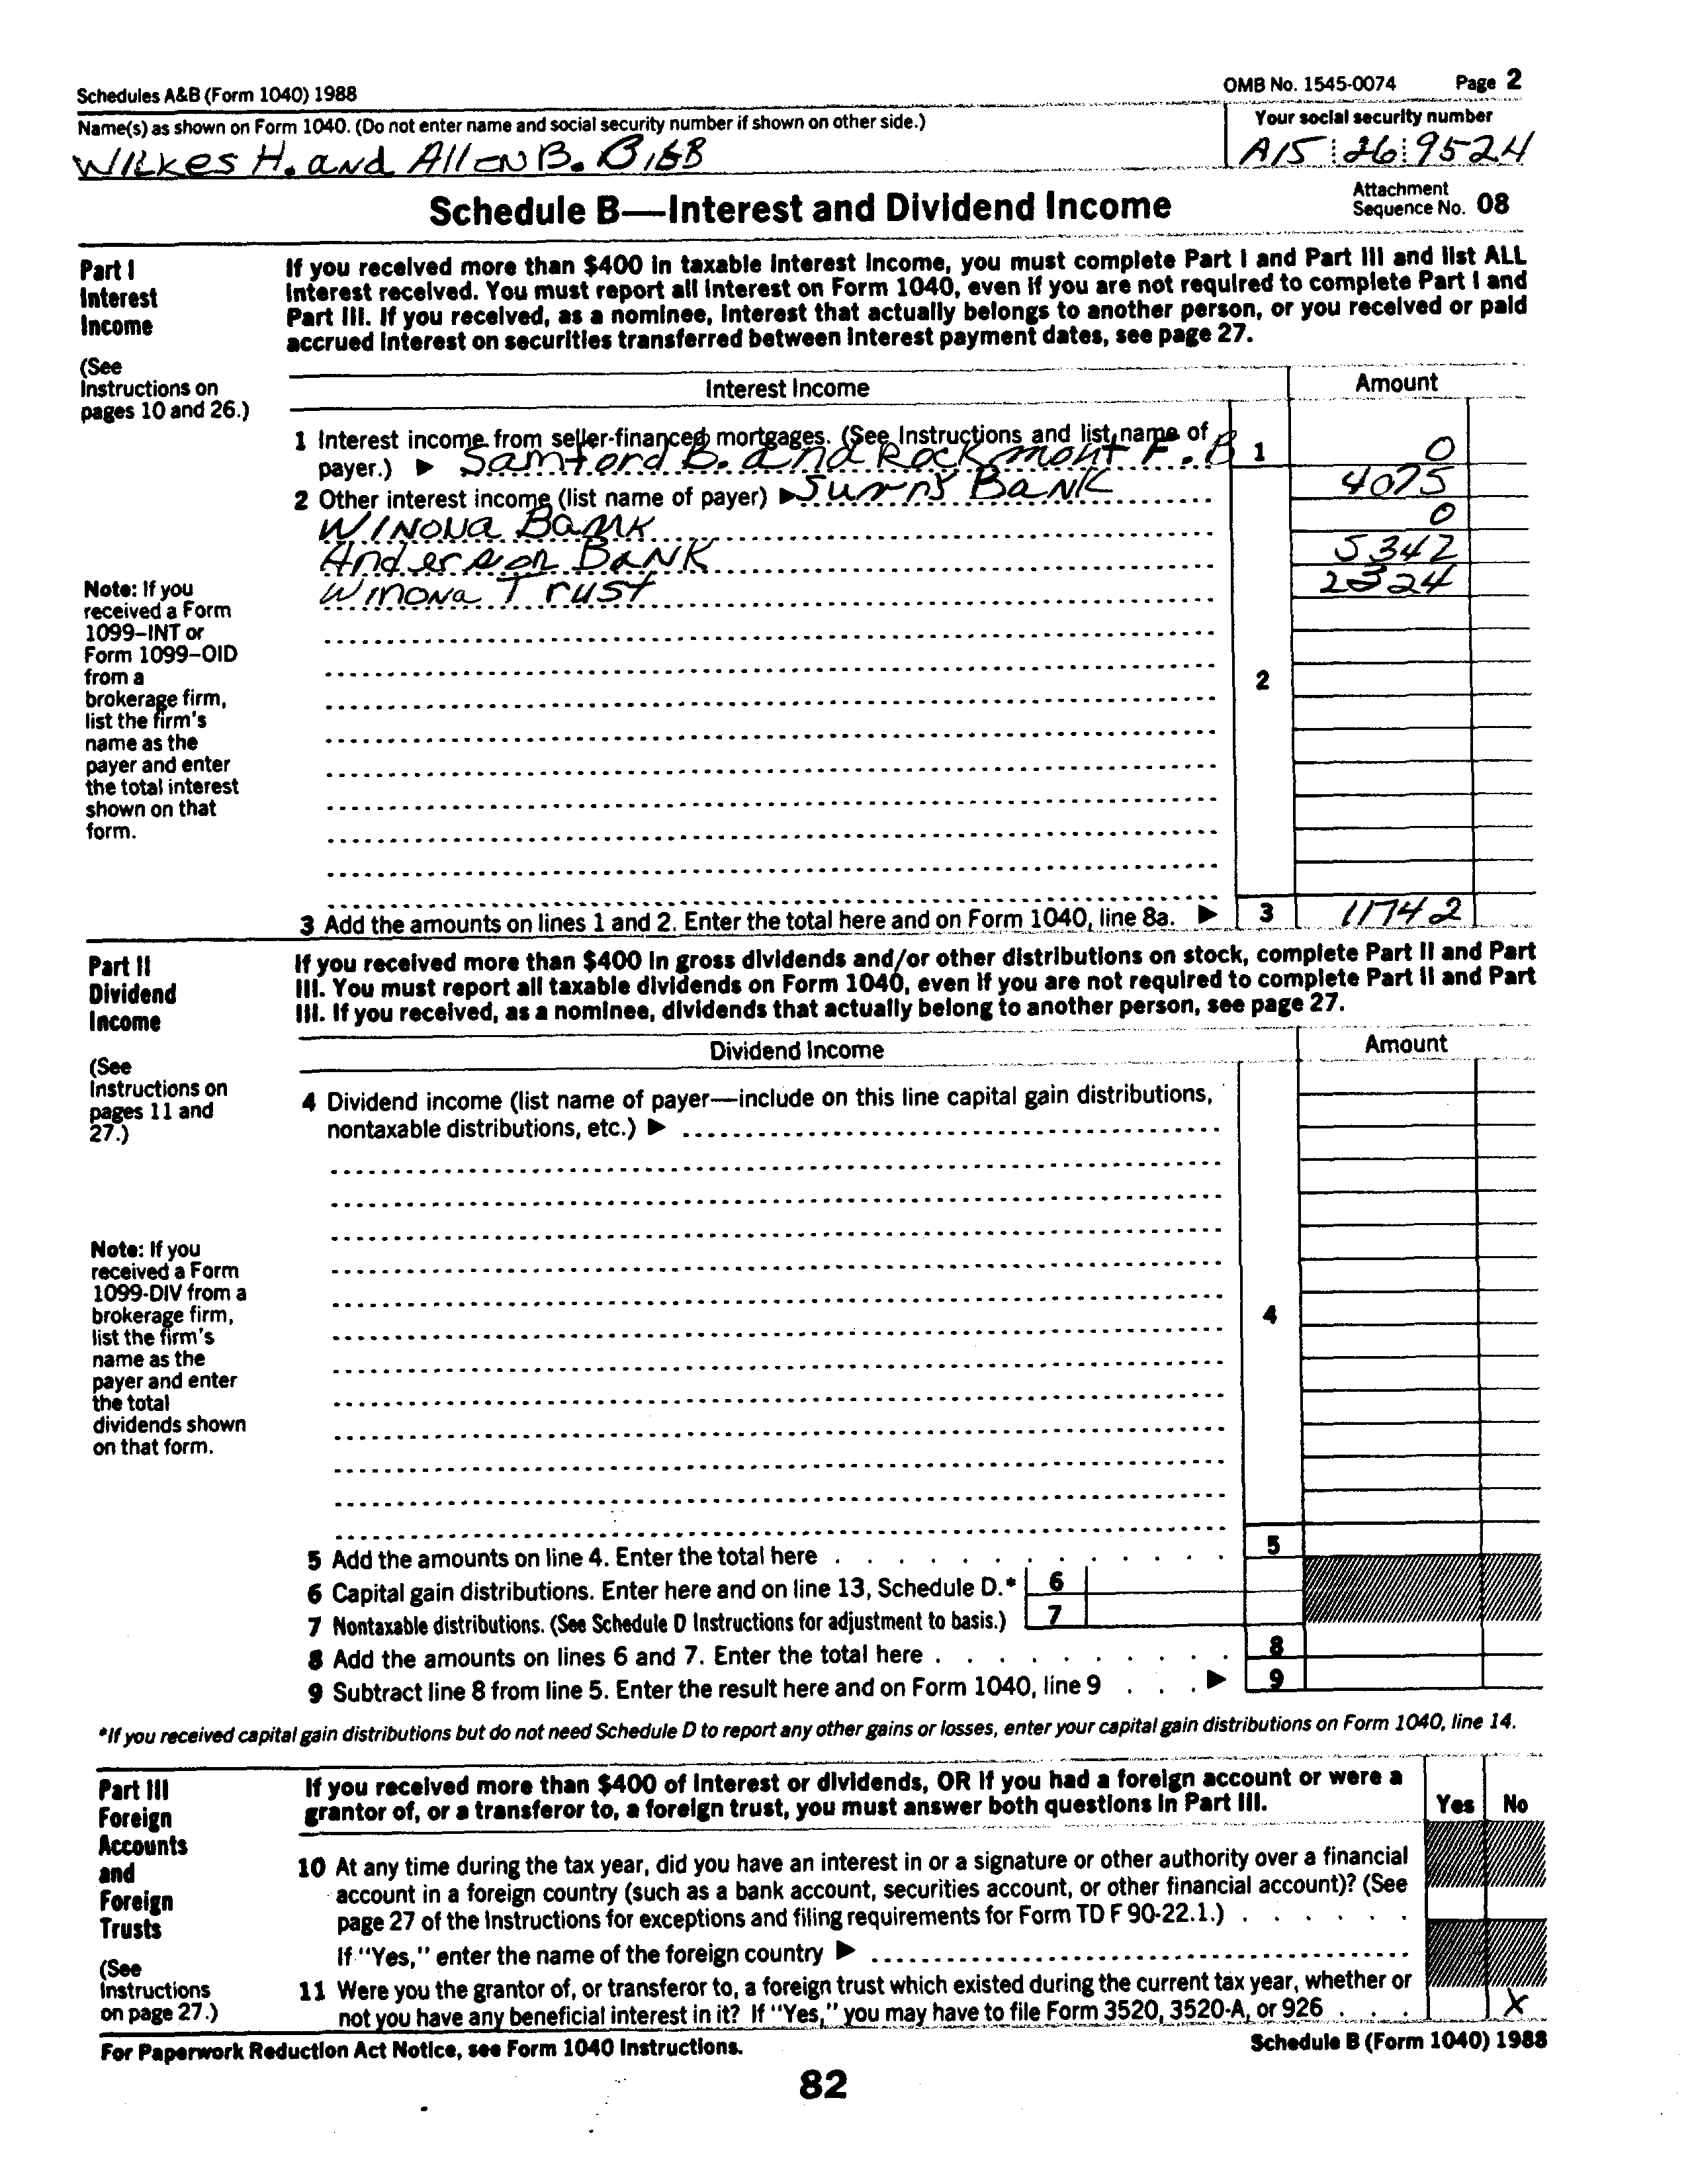 Schedules A&B (Form 1040) 1988 OMB No. 1545-0074 Page 2
Name(s) as shown on Form 1040. (Do not enter name and social security number if shown on other side.) Your social security number
WILKES H. and Allen B. Bibb A15 26 9524
Schedule B—Interest and Dividend Income
Attachment
Sequence No. 08
Part I
Interest
Income
(See
Instructions on
pages 10 and 26.)
If you received more than $400 in taxable interest income, you must complete Part I and Part III and list ALL
interest received. You must report all interest on Form 1040, even if you are not required to complete Part I and
Part III. If you received, as a nominee, interest that actually belongs to another person, or you received or paid
accrued interest on securities transferred between interest payment dates, see page 27.
Interest Income Amount
1 Interest income from seller-financed mortgages. (See Instructions and list name of
payer.) ▶ Samford B. and Rockmont F. B 1 0
2 Other interest income (list name of payer) ▶ Sunny Bank 4075
Winona Bank 0
Anderson Bank 5342
Winona Trust 2324
Note: If you
received a Form
1099–INT or
Form 1099–OID
from a
brokerage firm,
list the firm's
name as the
payer and enter
the total interest
shown on that
form.
2
3 Add the amounts on lines 1 and 2. Enter the total here and on Form 1040, line 8a. ▶ 3 11742
Part II
Dividend
Income
(See
Instructions on
pages 11 and
27.)
If you received more than $400 in gross dividends and/or other distributions on stock, complete Part II and Part
III. You must report all taxable dividends on Form 1040, even if you are not required to complete Part II and Part
III. If you received, as a nominee, dividends that actually belong to another person, see page 27.
Dividend Income Amount
4 Dividend income (list name of payer—include on this line capital gain distributions,
nontaxable distributions, etc.) ▶
Note: If you
received a Form
1099-DIV from a
brokerage firm,
list the firm's
name as the
payer and enter
the total
dividends shown
on that form.
4
5 Add the amounts on line 4. Enter the total here 5
6 Capital gain distributions. Enter here and on line 13, Schedule D.* 6
7 Nontaxable distributions. (See Schedule D Instructions for adjustment to basis.) 7
8 Add the amounts on lines 6 and 7. Enter the total here 8
9 Subtract line 8 from line 5. Enter the result here and on Form 1040, line 9 ▶ 9
*If you received capital gain distributions but do not need Schedule D to report any other gains or losses, enter your capital gain distributions on Form 1040, line 14.
Part III
Foreign
Accounts
and
Foreign
Trusts
(See
Instructions
on page 27.)
If you received more than $400 of interest or dividends, OR if you had a foreign account or were a
grantor of, or a transferor to, a foreign trust, you must answer both questions in Part III.
Yes No
10 At any time during the tax year, did you have an interest in or a signature or other authority over a financial
account in a foreign country (such as a bank account, securities account, or other financial account)? (See
page 27 of the Instructions for exceptions and filing requirements for Form TD F 90-22.1.)
If "Yes," enter the name of the foreign country ▶
11 Were you the grantor of, or transferor to, a foreign trust which existed during the current tax year, whether or
not you have any beneficial interest in it? If "Yes," you may have to file Form 3520, 3520-A, or 926 X
For Paperwork Reduction Act Notice, see Form 1040 Instructions. Schedule B (Form 1040) 1988
82